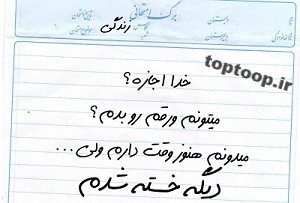 برگ امتحانی
زندگی
toptoop.ir
خدا اجازه؟
میتونم ورقم رو بدم؟
میدونم هنوز وقت دارم ولی...
دیگه خسته شدم